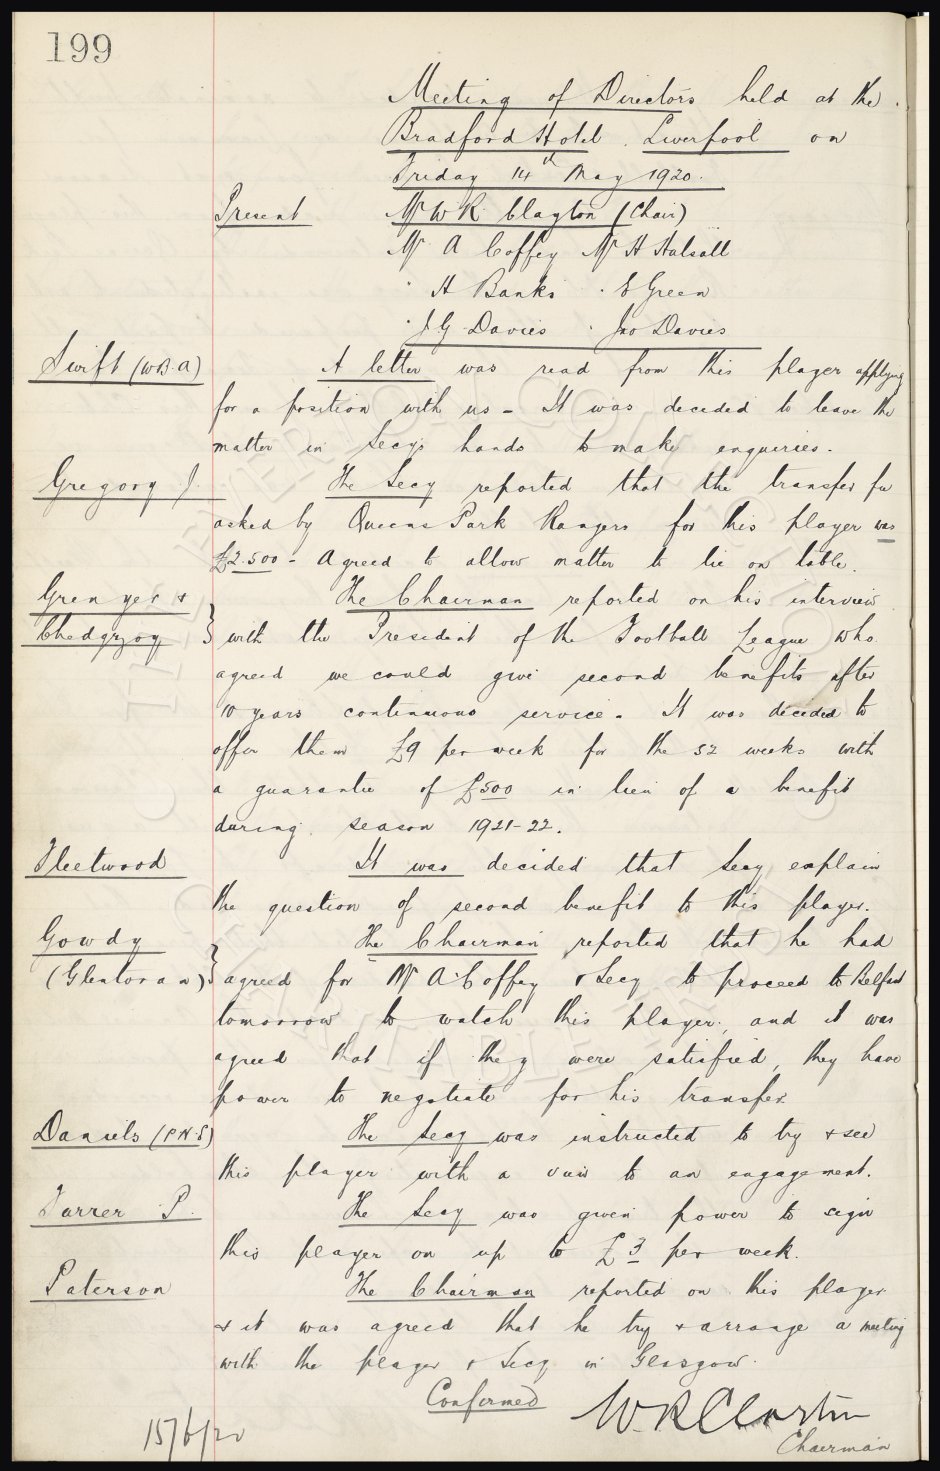 199
Meeting of Directors held at the
Bradford Hotel. Liverpool on
Friday 14th May 1920.
Present Mr W R. Clayton (Chair)
Mr A Coffey Mr H Halsall
" H Banks " E Green
" J G Davies " Jno Davies
Swift (W.B.A) A letter was read from this player applying
for a position with us - It was decided to leave the
matter in Secy's hands to make enquiries.
Gregory J. The Secy reported that the transfer fee
asked by Queens Park Rangers for this player was
£2.500 - Agreed to allow matter to lie on table.
Grenyer & The Chairman reported on his interview
Chedgzoy } with the President of the Football League who
agreed we could give second benefits after
10 years continuous service. It was decided to
offer them £9 per week for the 52 weeks with
a guarantee of £500 in lieu of a benefit
during season 1921-22.
Fleetwood It was decided that Secy explain
the question of second benefit to this player.
Gowdy The Chairman reported that he had
(Glentoran) } agreed for Mr A. Coffey & Secy to proceed to Belfast
tomorrow to watch this player, and it was
agreed that if they were satisfied, they have
power to negotiate for his transfer.
Daniels (P.N.E) The Secy was instructed to try & see
this player with a view to an engagement.
Farrer P. The Secy was given power to sign
this player on up to £3 per week.
Paterson The Chairman reported on this player
& it was agreed that he try & arrange a meeting
with the player & Secy in Glasgow.
Confirmed W. R Clayton
15/6/20 Chairman
THE EVERTON COLLECTION
CHARITABLE TRUST